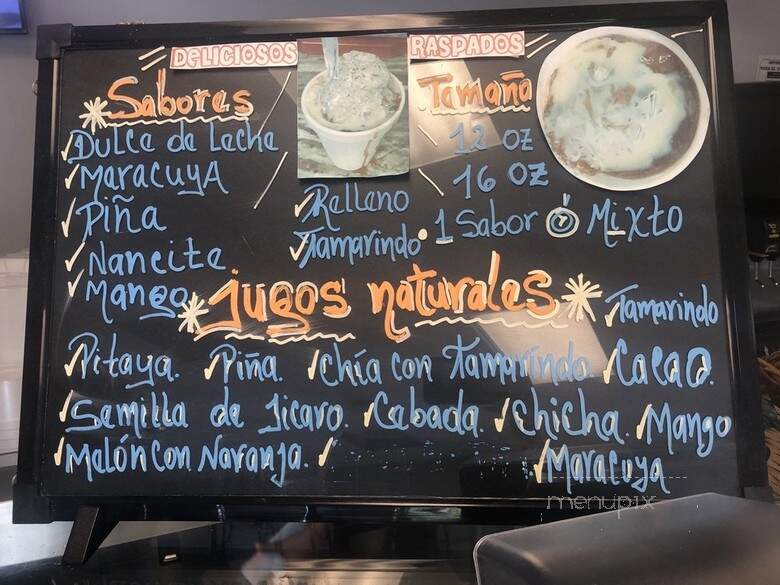 DELICIOSOS RASPADOS
Sabores
Dulce de Leche
Maracuya
Piña
Nancite
Mango
Relleno
Tamarindo
Tamaña
12 oz
16 oz
1 Sabor ó Mixto
jugos naturales
Tamarindo
Pitaya. Piña. Chía con Tamarindo. Cacao.
Semilla de Jicaro. Cebada. Chicha. Mango
Malón con Naranja.
Maracuya
menupix